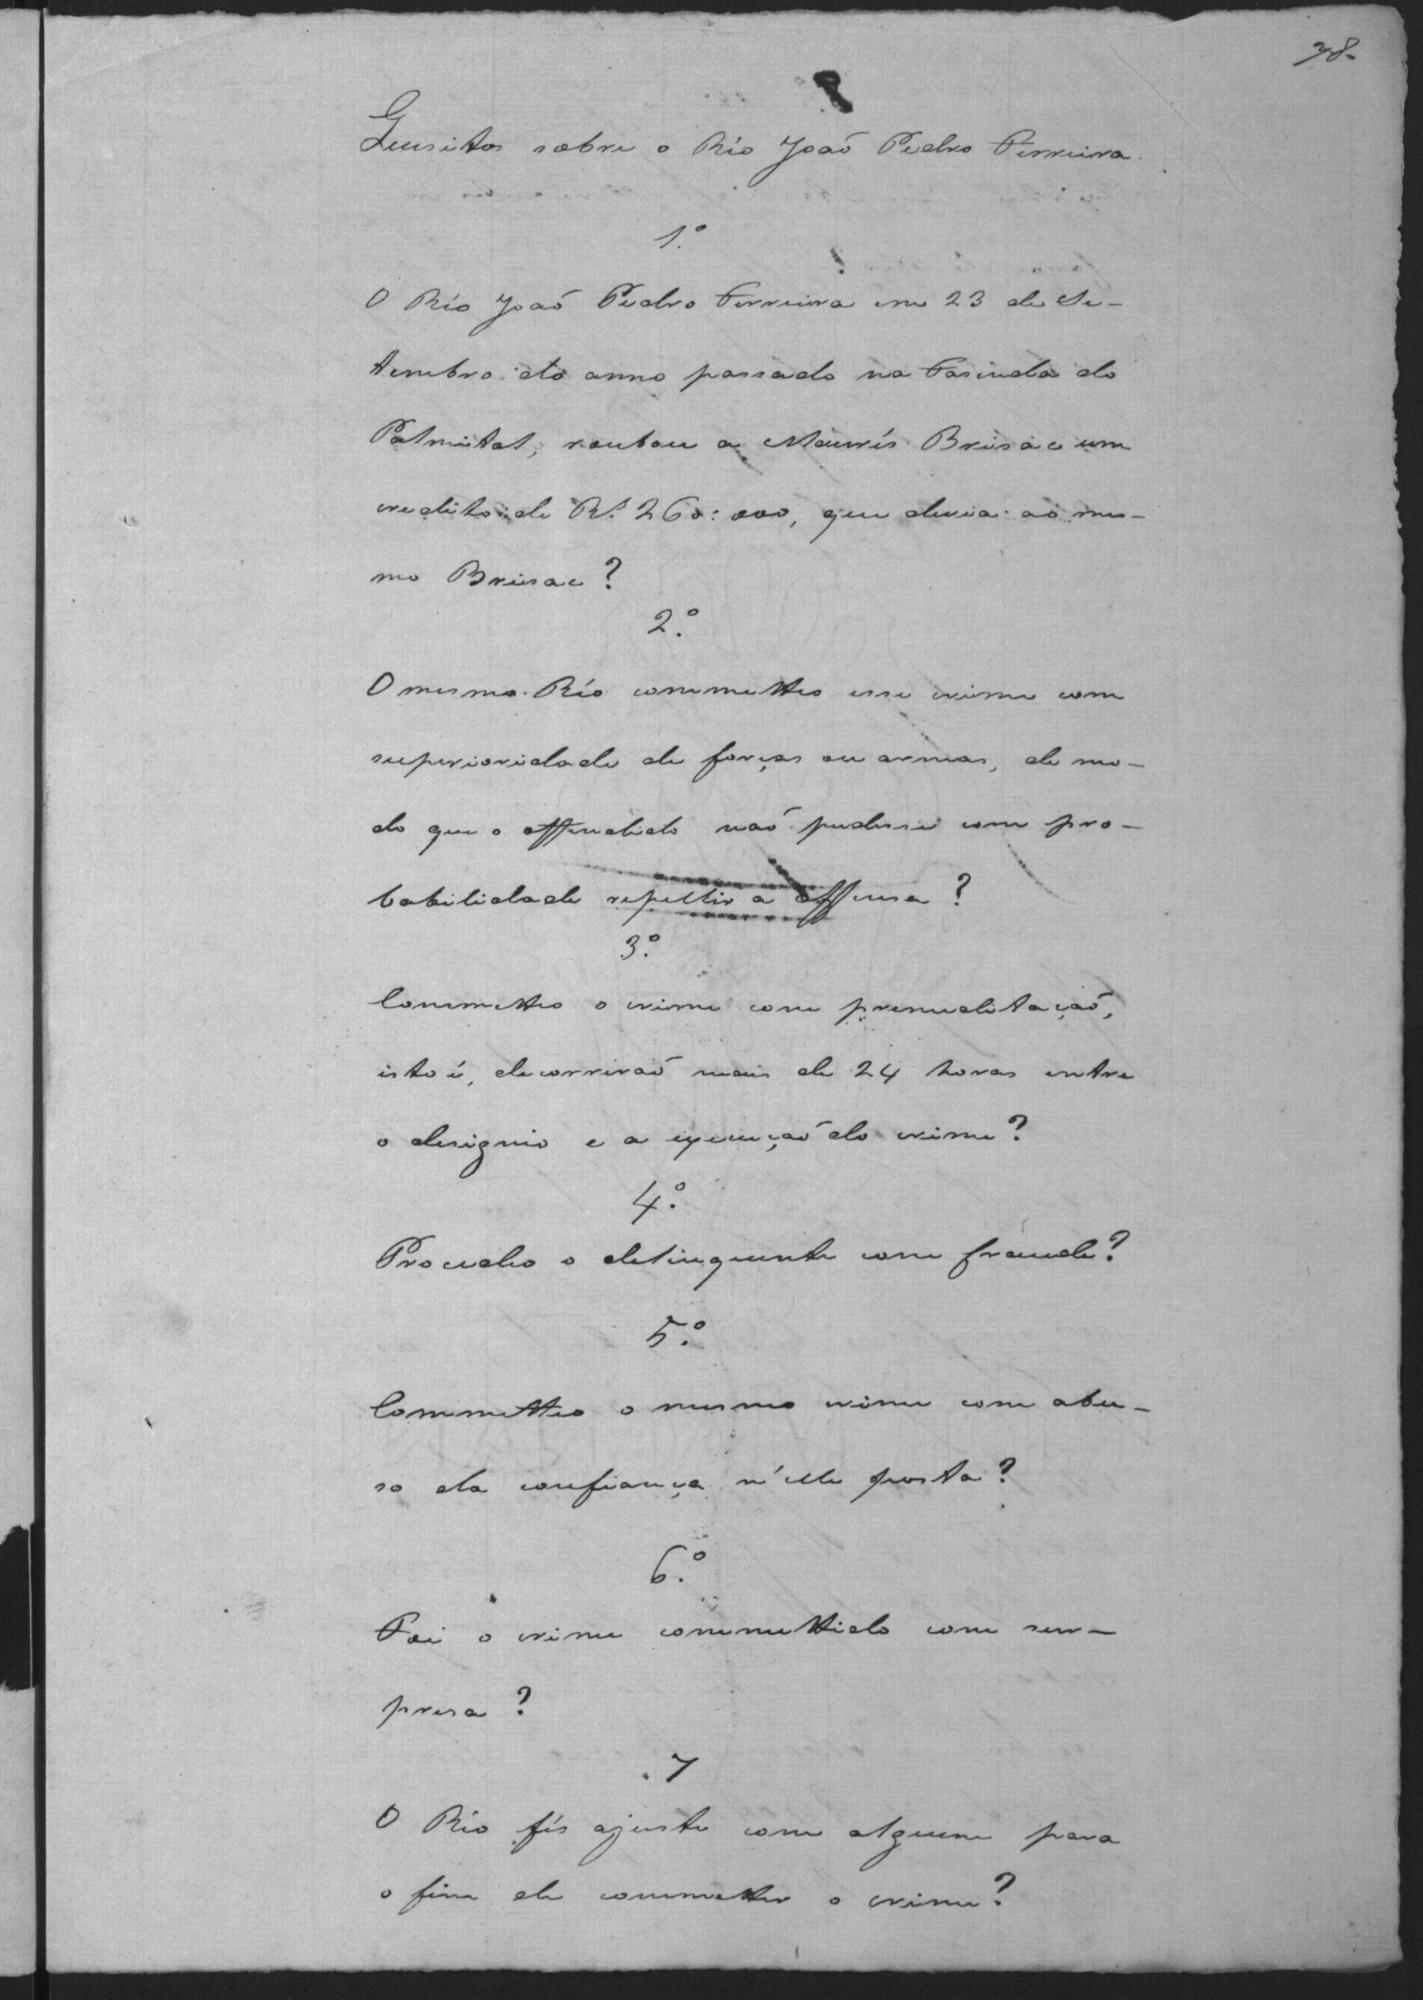 78
Quesitos sobre o Réo João Pedro Ferreira.
1.º
O Réo João Pedro Ferreira em 23 de Se-
tembro do anno passado na Fasenda do
Palmital, roubou a Maurís Brisac um
credito de R.s 260:000, que devia ao mes-
mo Brisac?
2.º
O mesmo Réo commetteo esse crime com
superioridade de forças ou armas, de mo-
do que o offendido não pudesse com pro-
babilidade repellir a offensa?
3.º
Commetteo o crime com premeditação,
isto é, decorrirão mais de 24 horas entre
o designio e a execução do crime?
4.º
Procedeo o delinquente com fraude?
5.º
Commetteo o mesmo crime com abu-
so da confiança n'elle posta?
6.º
Foi o crime commettido com sur-
presa?
7
O Réo fés ajuste com alguem para
o fim de commetter o crime?